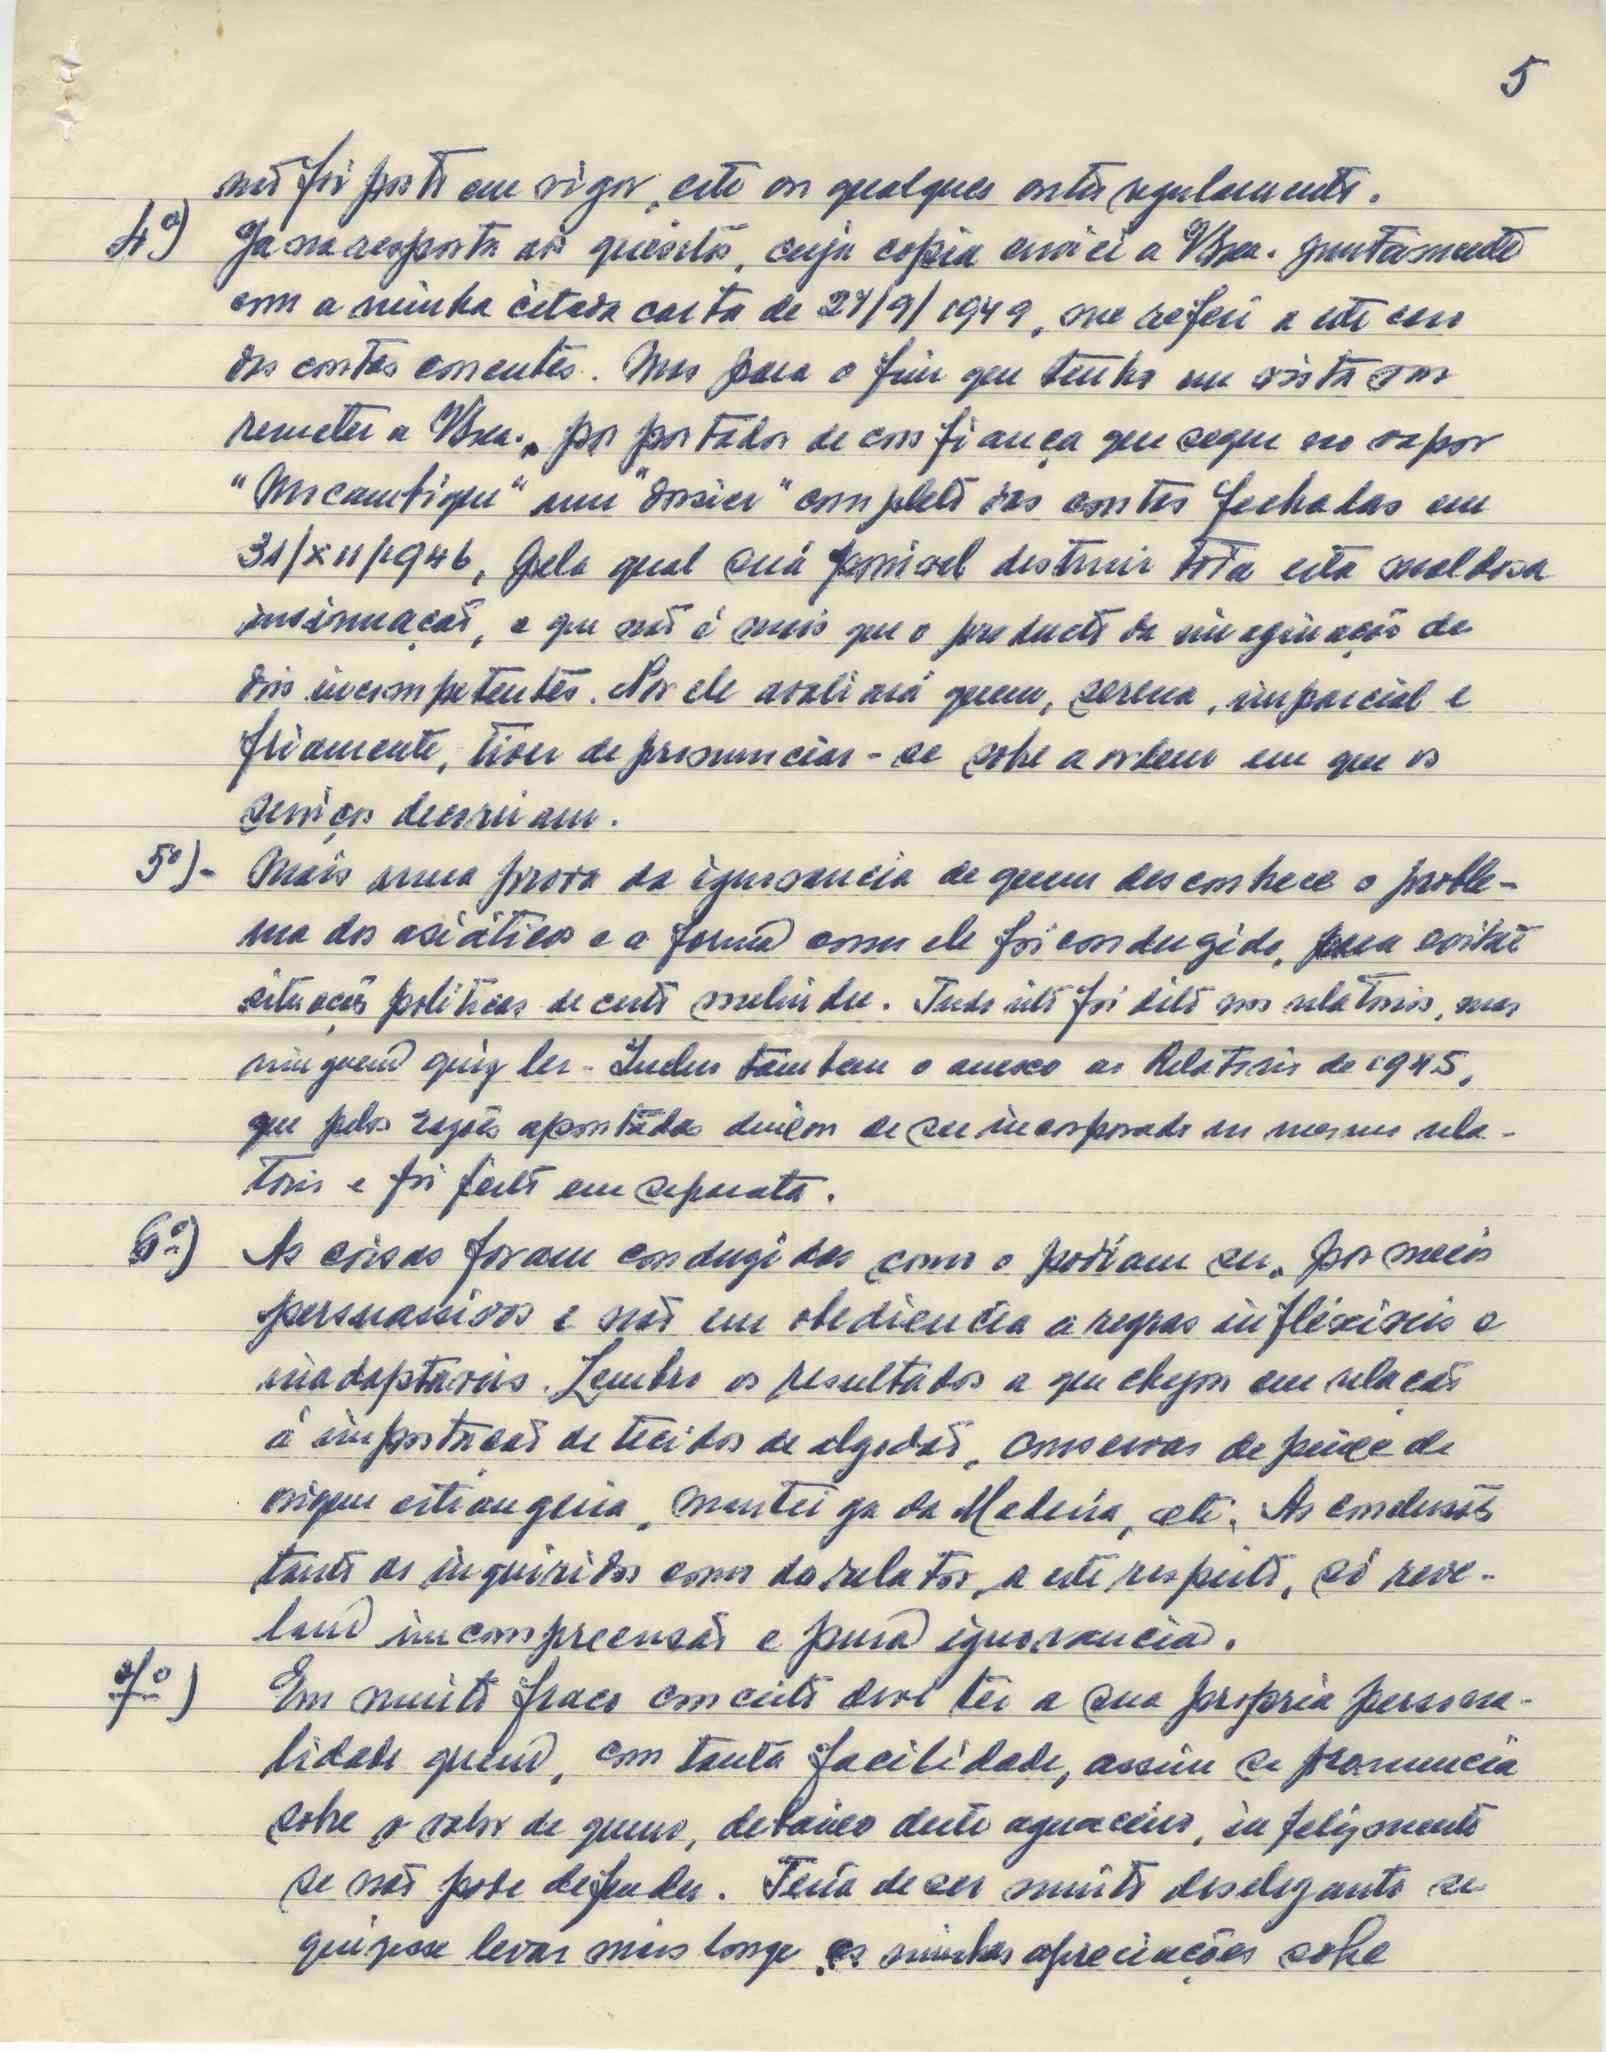 5
não foi posto em vigor, este ou qualquer outro regulamento.
4º) Já na resposta aos quesitos, cuja copia enviei a VExa. juntamente
com a minha citada carta de 27/9/1949, me referi a este caso
das contas correntes. Mas para o fim que tenho em vista vou
remeter a VExa., por portador de confiança que segue no vapor
"Moçambique" um "dossier" completo das contas fechadas em
31/XII/1946, pela qual será possivel destruir toda esta maldosa
insinuação, e que não é mais que o producto da imaginação de
dois incompetentes. Por ele avaliará quem, serena, imparcial e
friamente, tiver de pronunciar-se sobre a ordem em que os
serviços decorriam.
5º)- Mais uma prova da ignorancia de quem desconhece o proble-
ma dos asiáticos e a forma como ele foi conduzido, para evitar
situações politicas de certo melindre. Tudo isto foi dito nos relatorios, mas
ninguem quiz ler - Incluo tambem o anexo ao Relatorio de 1945,
que pelas razões apontadas deixou de ser incorporado no mesmo rela-
torio e foi feito em separata.
6º) As coisas foram conduzidas como o podiam ser, por meios
persuassivos e não em obediencia a regras inflexiveis e
inadaptaveis. Lembro os resultados a que chegou em relação
á importação de tecidos de algodão, conservas de peixe de
origem estrangeira, manteiga da Madeira, etc. As conclusões
tanto os inquiridos como do relator, a este respeito, só reve-
lam incompreensão e pura ignorancia.
7º) Em muito fraco conceito deve ter a sua propria persona-
lidade quem, com tanta facilidade, assim se pronuncia
sobre o valor de quem, debaixo deste aguaceiro, infelizmente
se não pode defender. Teria de ser muito deselegante se
quizesse levar mais longe as minhas apreciações sobre